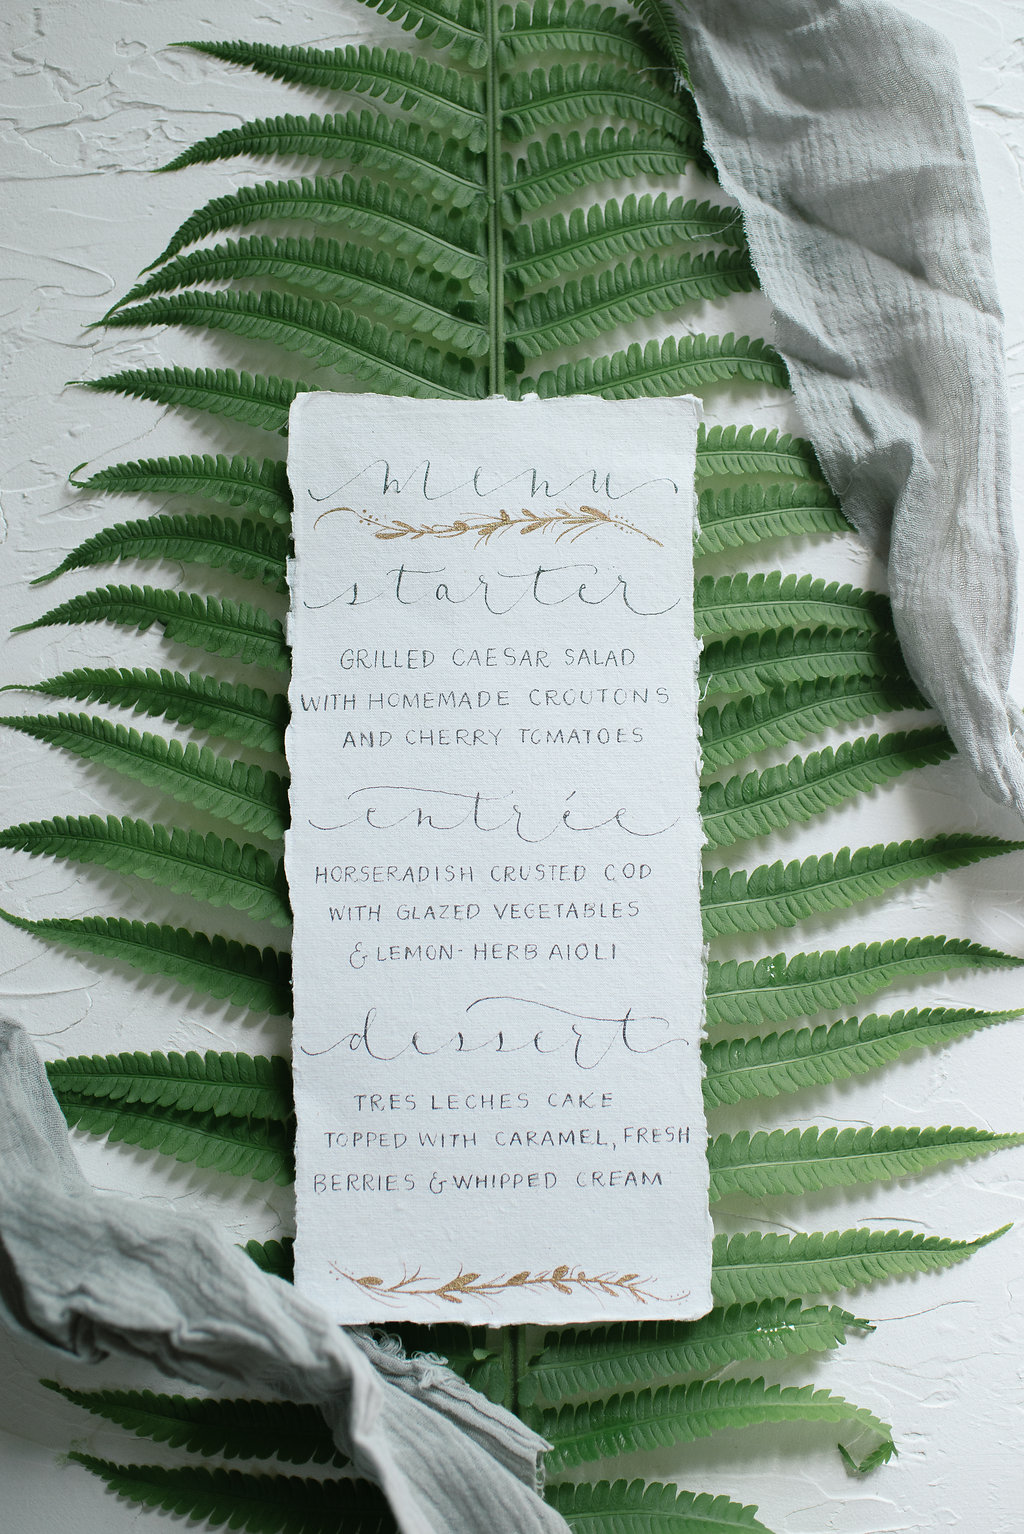 menu
starter
GRILLED CAESAR SALAD
WITH HOMEMADE CROUTONS
AND CHERRY TOMATOES
entrée
HORSERADISH CRUSTED COD
WITH GLAZED VEGETABLES
& LEMON-HERB AIOLI
dessert
TRES LECHES CAKE
TOPPED WITH CARAMEL, FRESH
BERRIES & WHIPPED CREAM